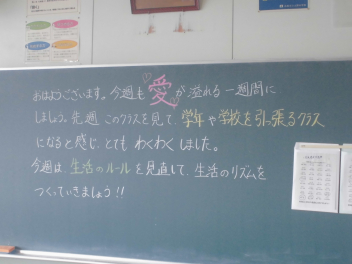 おはようございます。今週も愛が溢れる一週間に
しましょう。先週、このクラスを見て、学年や学校を引っ張るクラス
になると感じ、とてもわくわくしました。
今週は、生活のルールを見直して、生活のリズムを
つくっていきましょう!!